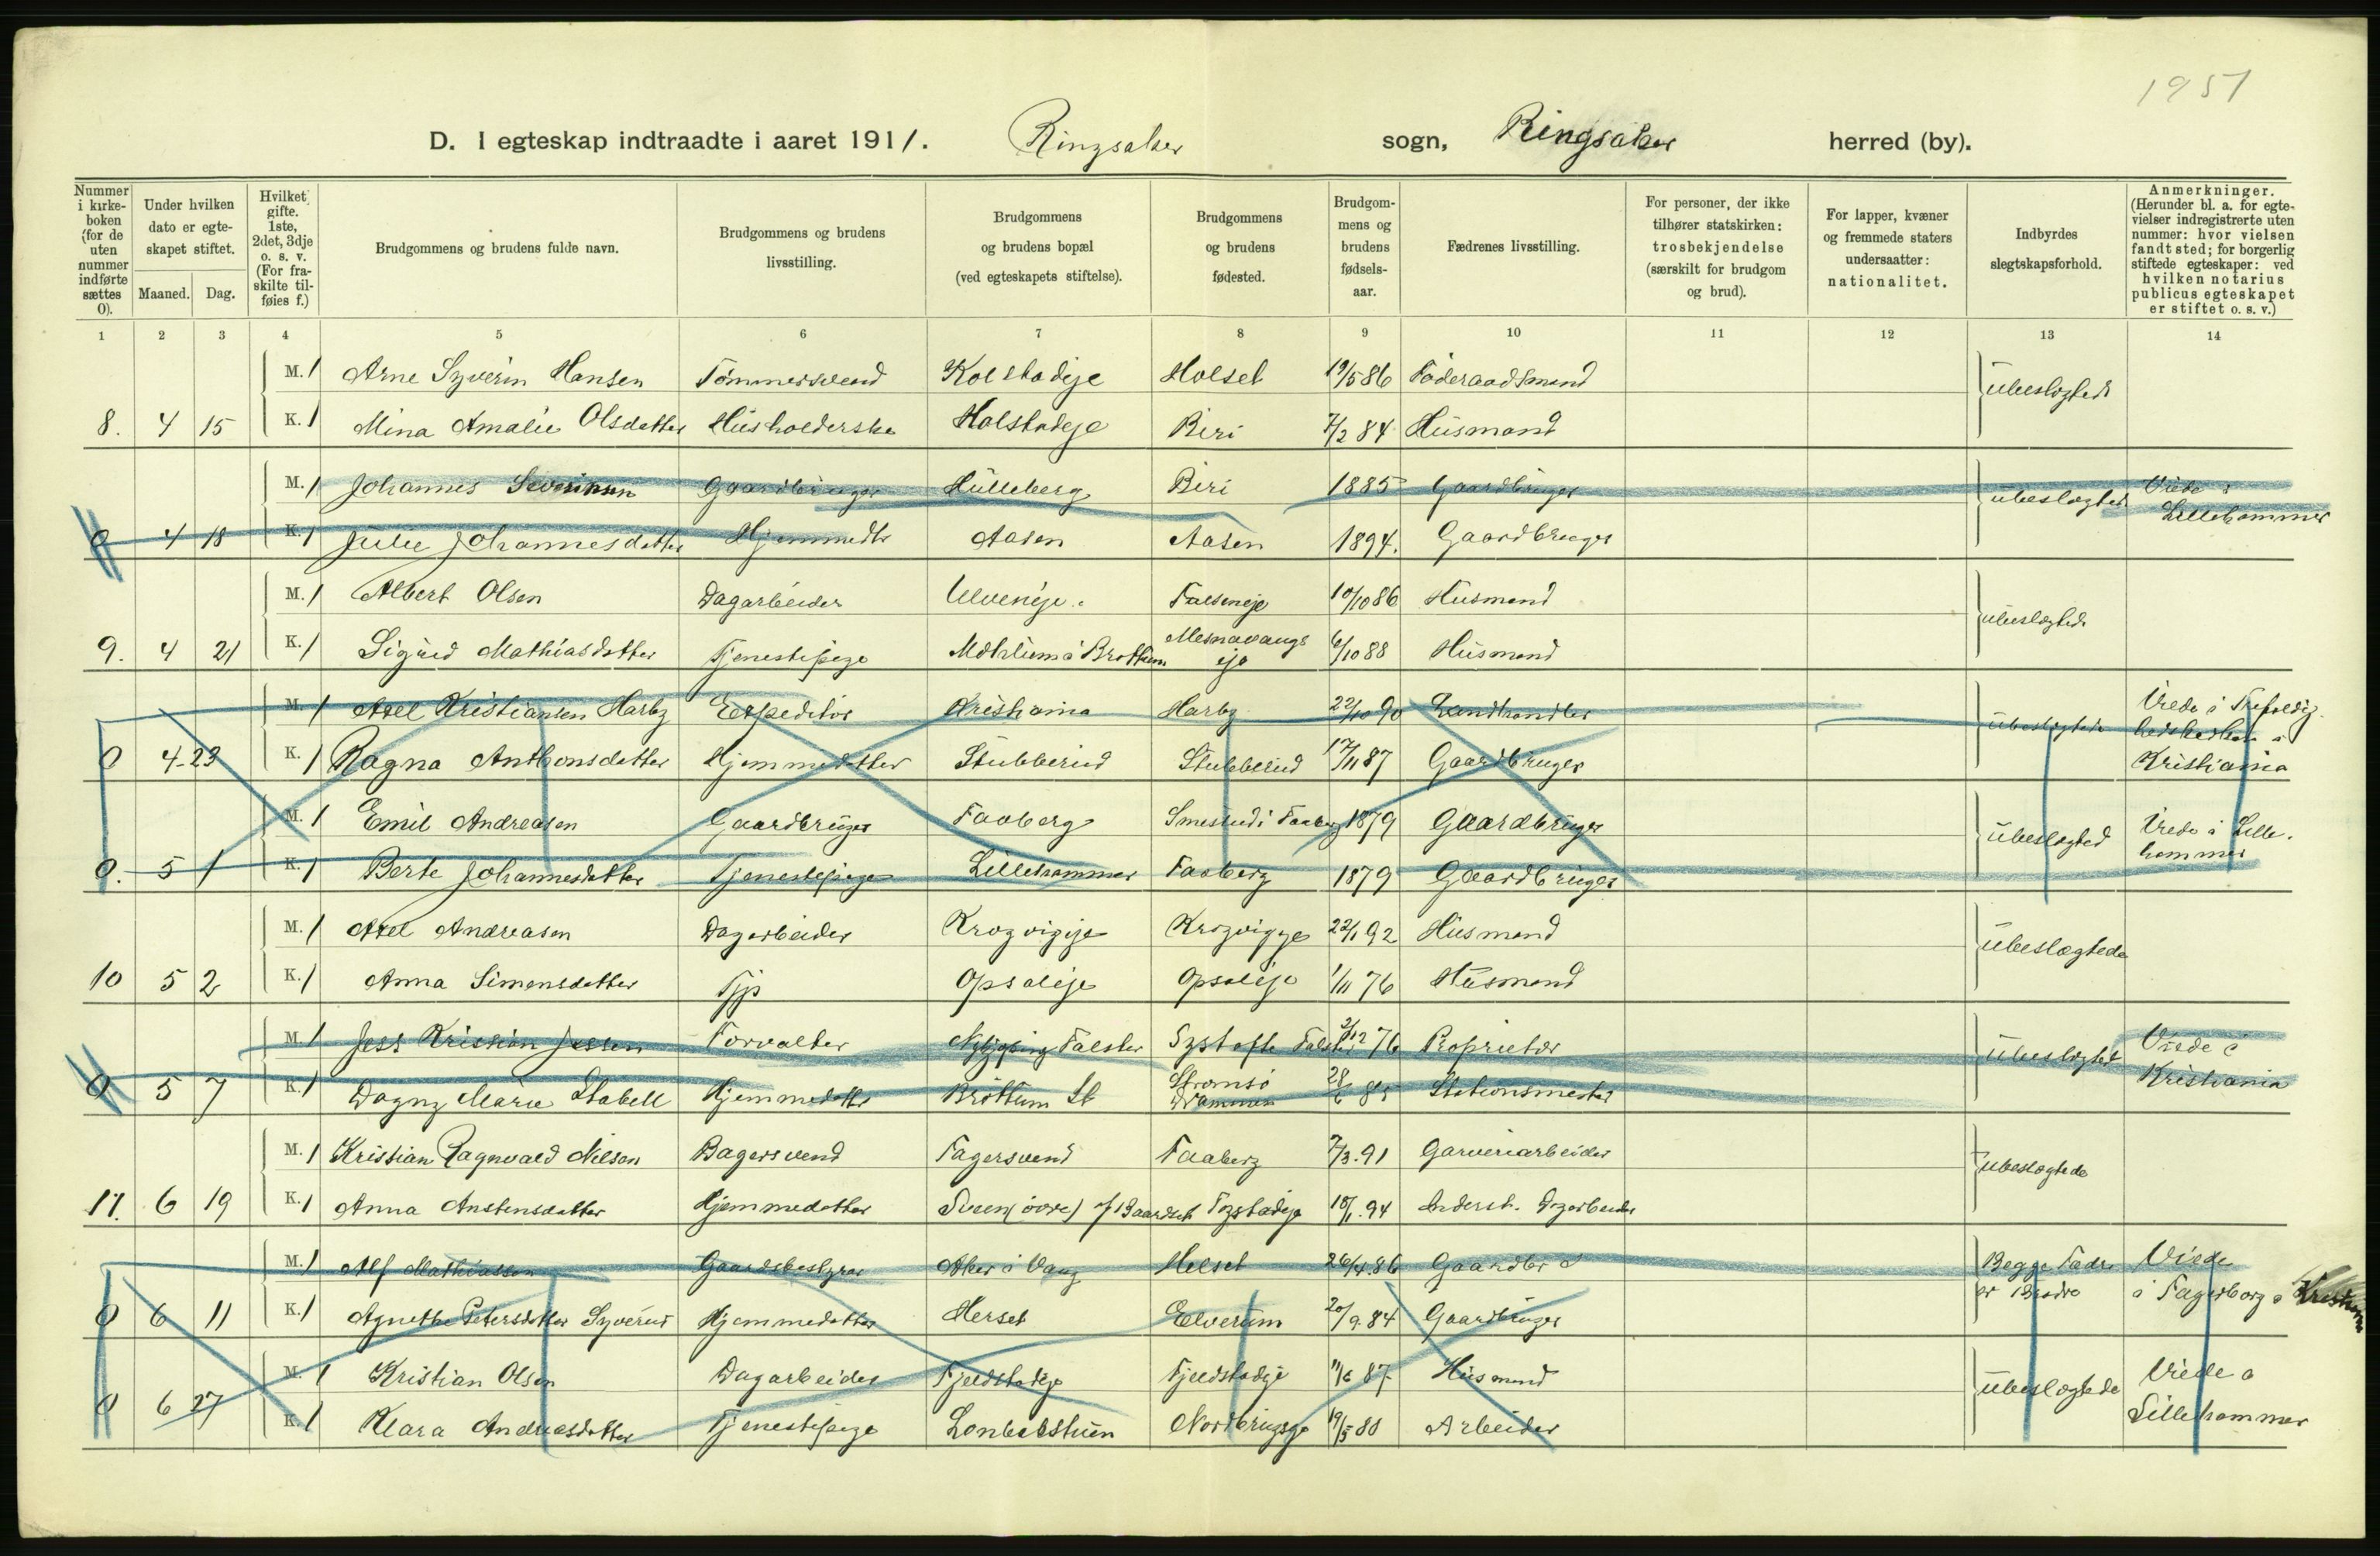 1951
D. I egteskap indtraadte i aaret 1911. Ringsaker sogn, Ringsaker herred (by).
Nummer i kirke-boken (for de uten nummer indførte sættes 0).
Under hvilken dato er egte-skapet stiftet.
Maaned. Dag.
Hvilket gifte. 1ste, 2det, 3dje o. s. v. (For fra-skilte til-føies f.)
Brudgommens og brudens fulde navn.
Brudgommens og brudens livsstilling.
Brudgommens og brudens bopæl (ved egteskapets stiftelse).
Brudgommens og brudens fødested.
Brudgom-mens og brudens fødsels-aar.
Fædrenes livsstilling.
For personer, der ikke tilhører statskirken: trosbekjendelse (særskilt for brudgom og brud).
For lapper, kvæner og fremmede staters undersaatter: nationalitet.
Indbyrdes slegtskapsforhold.
Anmerkninger. (Herunder bl. a. for egte-vielser indregistrerte uten nummer: hvor vielsen fandt sted; for borgerlig stiftede egteskaper: ved hvilken notarius publicus egteskapet er stiftet o. s. v.)
1 2 3 4 5 6 7 8 9 10 11 12 13 14
M. 1 Arne Syverin Hansen Tømmersvend Kolstadeje Holset 19/5 86 Føderaadsmand ubeslegtede
8. 4 15 K. 1 Mina Amalie Olsdatter Husholderske Holstadeje Biri 7/2 84 Husmand
M. 1 Johannes Severinsen Gaardbruger Hulleberg Biri 1885 Gaardbruger ubeslægtede Viede i
0 4 18 K. 1 Julie Johannesdatter Hjemmedtr Aasen Aasen 1894. Gaardbruger Lillehammer
M. 1 Albert Olsen Dagarbeider Ulveneje Falseneje 10/10 86 Husmand ubeslegtede
9. 4 21 K. 1 Sigrid Mathiasdatter Tjenestepige Mæhlum i Brøttum Mesnavangseje 6/10 88 Husmand
M. 1 Axel Kristiansen Harby Expeditør Kristiania Harby 22/10 90 Landhandler ubeslegtede Viede i Trefoldig-
0 4-23 K. 1 Ragna Anthonsdatter Hjemmedatter Stubberud Stubberud 17/11 87 Gaardbruger hedskirken i Kristiania
M. 1 Emil Andreasen Gaardbruger Faaberg Smestad i Faaberg 1879 Gaardbruger ubeslegted Viede i Lille-
0. 5 1 K. 1 Berte Johannesdatter Tjenestepige Lillehammer Faaberg 1879 Gaardbruger hammer
M. 1 Axel Andreasen Dagarbeider Krogvigeje Krogvigeje 22/1 92 Husmand ubeslegtede
10 5 2 K. 1 Anna Simensdatter Tjp Opsaleje Opsaleje 1/11 76 Husmand
M. 1 Jess Kristian Jessen Forvalter Nykjøping Falster Systofte Falster 2/12 76 Proprietær ubeslegted Viede i
0 5 7 K. 1 Dagny Marie Stabell Hjemmedatter Brøttum St Strømsø Drammen 28/6 85 Stationsmester Kristiania
M. 1 Kristian Ragnvald Nilsen Bagersvend Fagersvend Faaberg 7/3.91 Garveriarbeider ubeslegtede
11. 6 19 K. 1 Anna Anstensdatter Hjemmedatter Sveen (øvre) af Baardset Fystadeje 18/1.94 Dagarbeider
M. 1 Alf Mathiassen Gaardsbestyrer Aker i Vang Helset 26/4.86 Gaardbr Begge Fædre Viede
0 6 11 K. 1 Agnethe Petersdatter Syverud Hjemmedatter Herset Elverum 20/9.84 Gaardbruger er Brødre i Fagerborg i Kristiania
M. 1 Kristian Olsen Dagarbeider Fjeldstadeje Fjeldstadeje 11/6 87 Husmand ubeslegtede Viede i
0 6 27 K. 1 Klara Andreasdatter Tjenestepige 19/5 80 Arbeider Lillehammer